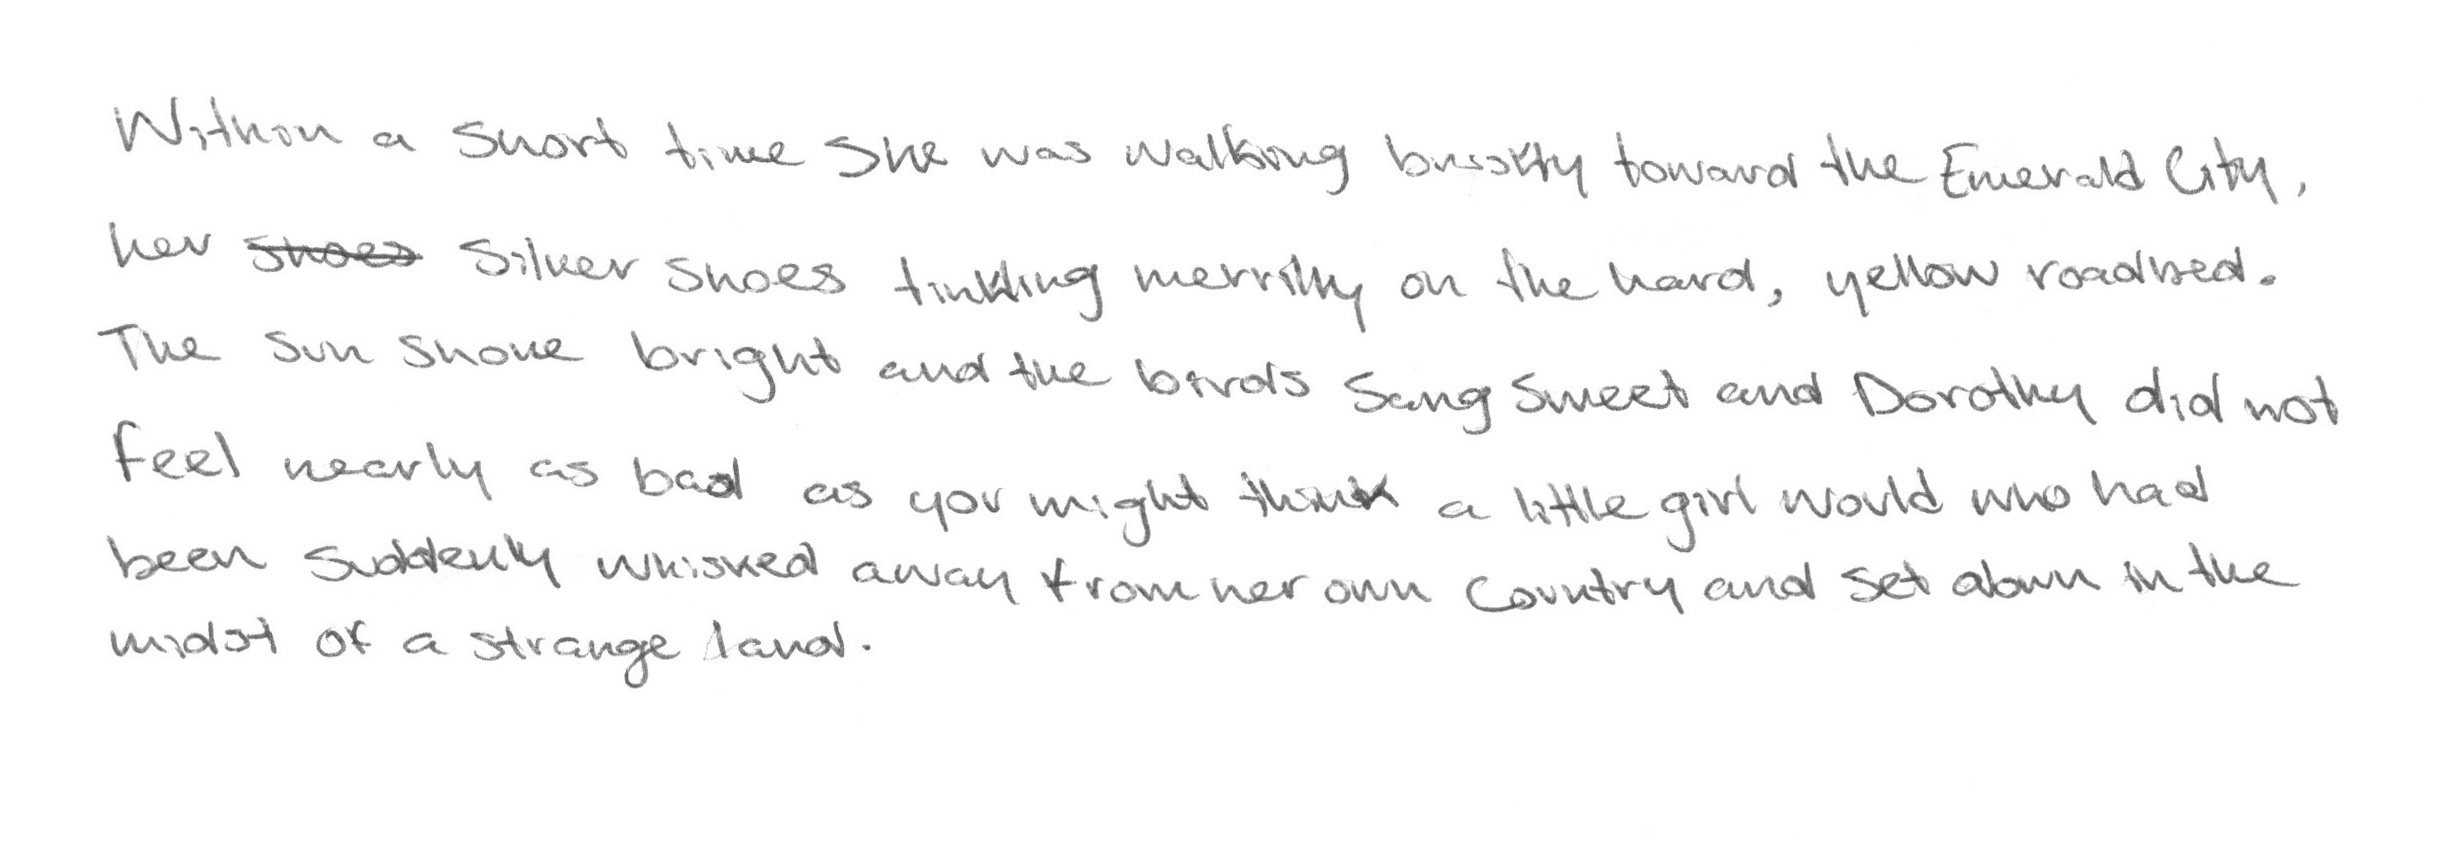 Within a short time she was walking briskly toward the Emerald City,
her ~~shoes~~ silver shoes tinkling merrily on the hard, yellow roadbed.
The sun shone bright and the birds sang sweet and Dorothy did not
feel nearly as bad as you might think a little girl would who had
been suddenly whisked away from her own country and set down in the
midst of a strange land.